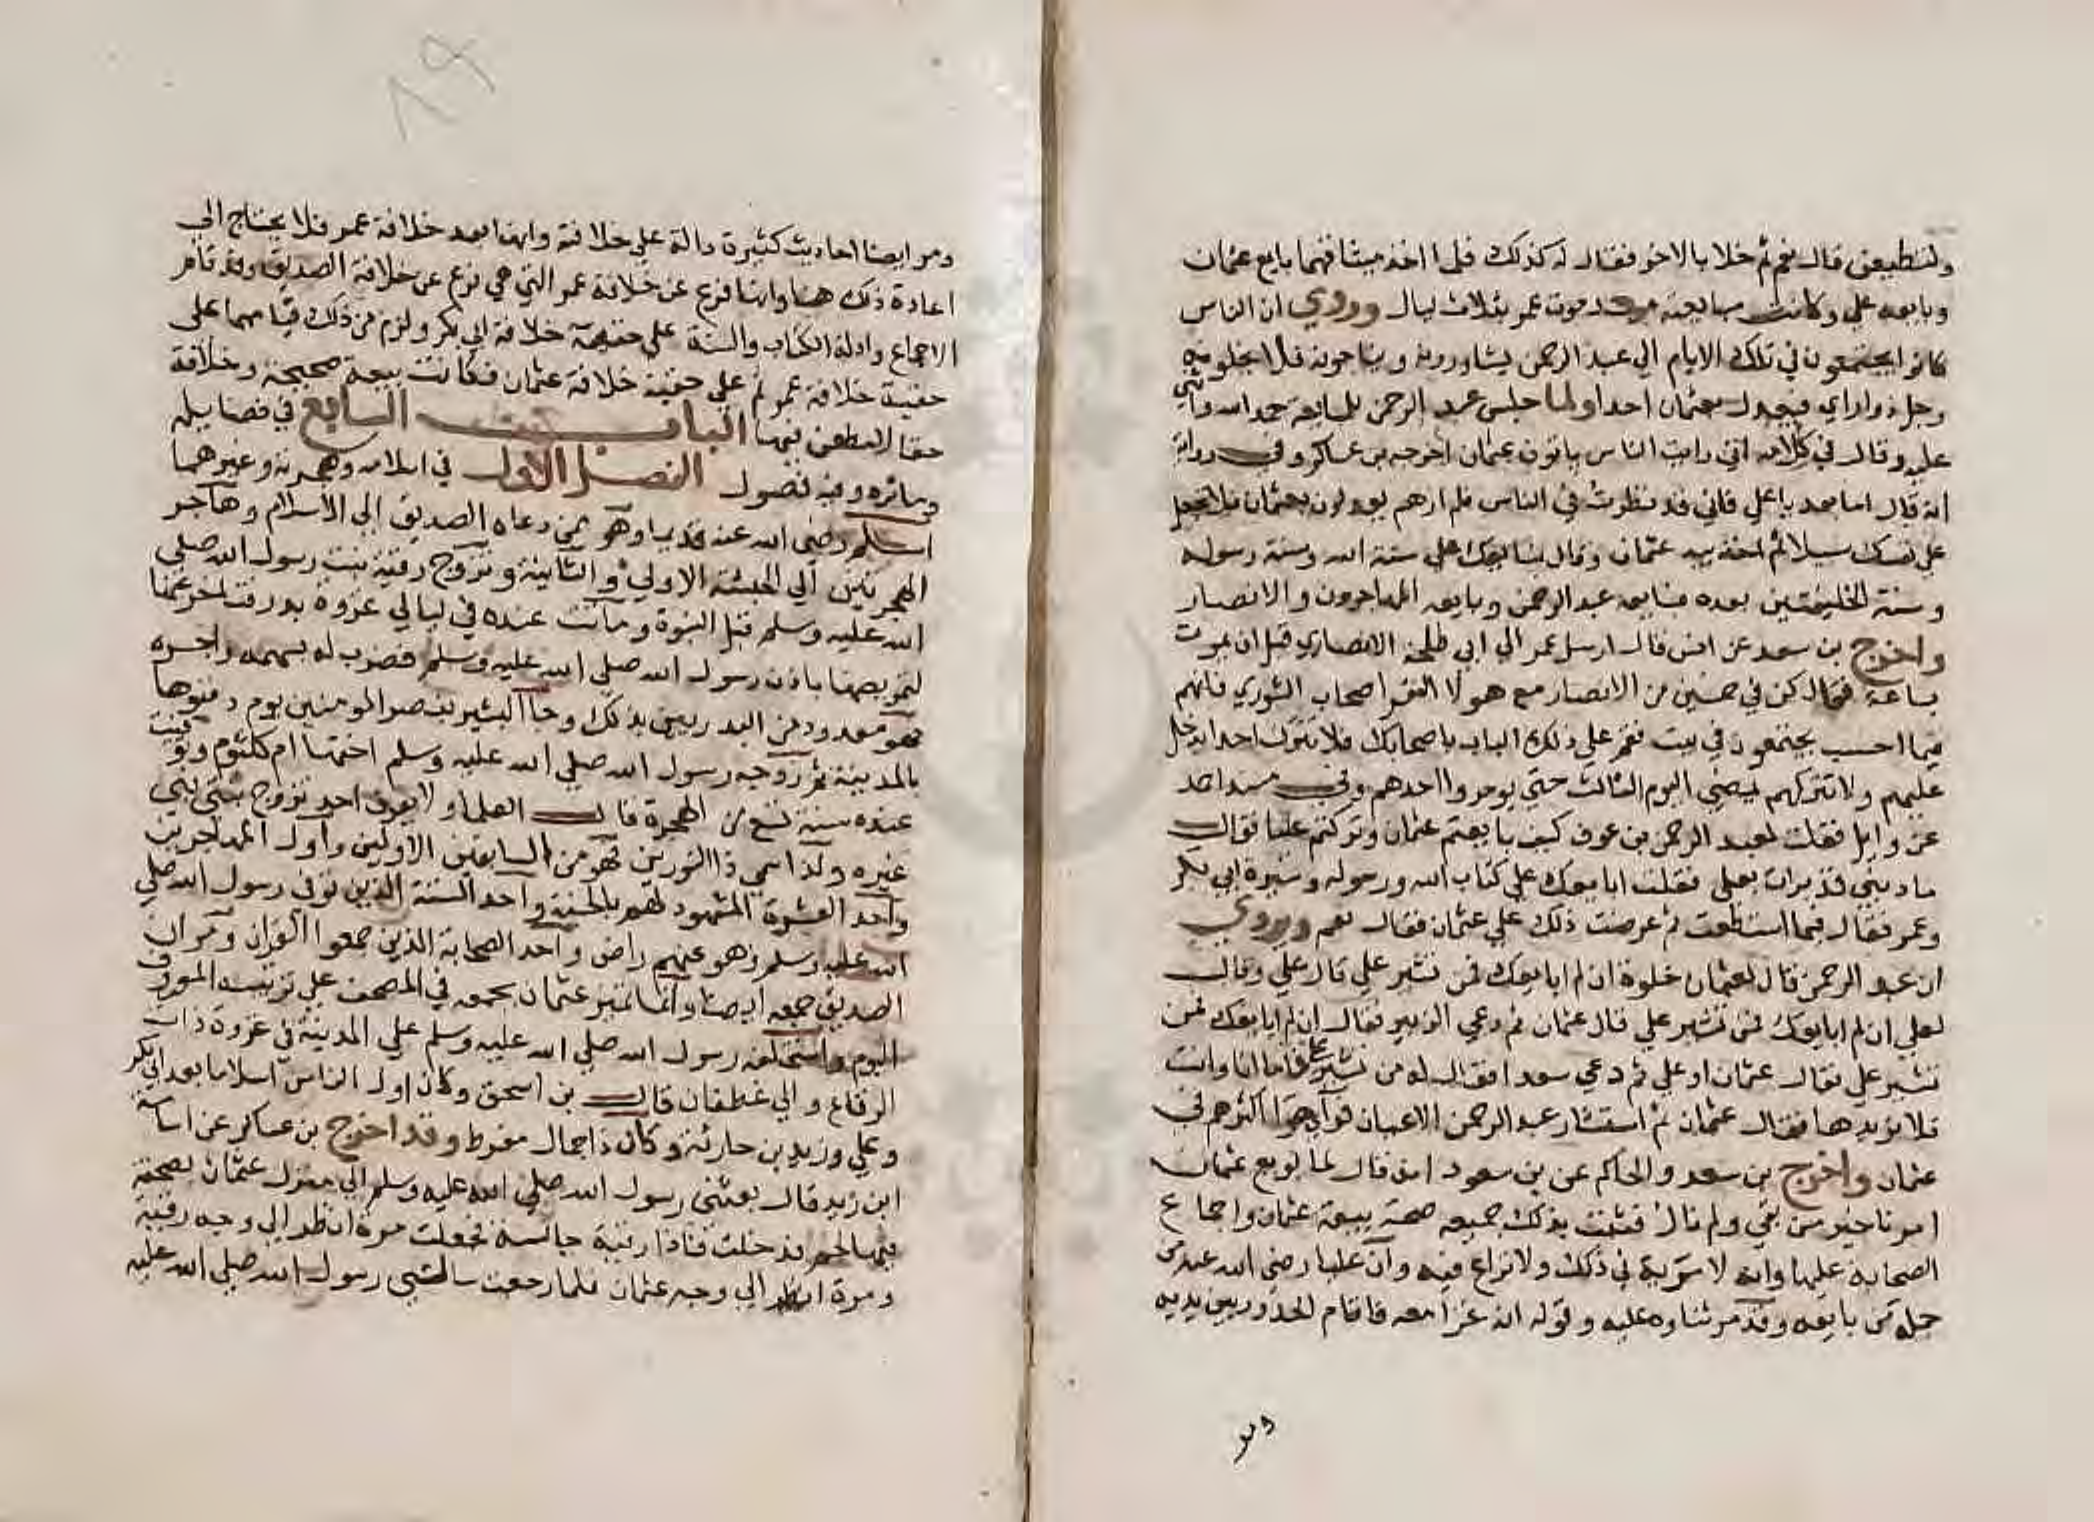 ولتطيعن قال نعم ثم خلا بالاخر فقال له كذلك فلما اخذ ميثاقهما بايع عثمان
وبايعه علي وكانت مبايعته بعد موت عمر بثلاث ليال وروي ان الناس
كانوا يجتمعون في تلك الايام الي عبد الرحمن يشاورونه ويناجونه فلا يخلو به
رجل ذو اراي فيعدل بعثمان احدا ولما جلس عبد الرحمن للمبايعة حمد الله واثني
عليه وقال في كلامه اني رايت الناس يابون عثمان اخرجه بن عساكر وفي رواية
انه قال اما بعد يا علي فاني قد نظرت في الناس فلم ارهم يعدلون بعثمان فلا تجعل
علي نفسك سبيلا ثم اخذ بيد عثمان وقال نبايعك علي سنة الله وسنة رسوله
وسنة الخليفتين بعده فبايعه عبد الرحمن وبايعه المهاجرون والانصار
واخرج بن سعد عن انس قال ارسل عمر الي ابي طلحة الانصاري قبل ان يموت
بساعة فقال كن في خمسين من الانصار مع هولا النفر اصحاب الشوري فانهم
فيما احسب يجتمعون في بيت فقم علي ذلك الباب باصحابك فلا تترك احدا يدخل
عليهم ولا تتركهم يمضي اليوم الثالث حتي يومروا احدهم وفي مسند احمد
عن وايل فقلت لعبد الرحمن بن عوف كيف بايعتم عثمان وتركتم عليا فقال
ما ذنبي قد بدات بعلي فقلت ابايعك علي كتاب الله ورسوله وسيرة ابي بكر
وعمر فقال فيما استطعت ثم عرضت ذلك علي عثمان فقال نعم ويروي
ان عبد الرحمن قال لعثمان خلوة ان لم ابايعك فمن تشير علي قال علي وقال
لعلي ان لم ابايعك فمن تشير علي قال عثمان ثم دعي الزبير فقال ان لم ابايعك فمن
تشير علي فقال عثمان او علي ثم دعي سعدا فقال له من تشير علي فاما انا وانت
فلا نريدها فقال عثمان ثم استشار عبد الرحمن الاعيان فراي هوا اكثرهم في
عثمان واخرج بن سعد والحاكم عن بن مسعود انه قال لما بويع عثمان
امرنا خير من بقي ولم نال فثبت بذلك جميعه صحة بيعة عثمان واجماع
الصحابة عليها وانه لا مرية في ذلك ولا نزاع فيه وان عليا رضي الله عنه من
جملة من بايعه وقد مر ثناوه عليه وقوله انه غزا معه فاقام الحدود بين يديه
ومر
٨٩
ومر ايضا احاديث كثيرة دالة علي خلافته وانها بعد خلافة عمر فلا يحتاج الي
اعادة ذلك هنا وانها فرع عن خلافة عمر التي هي فرع عن خلافة الصديق وقد قام
الاجماع وادلة الكتاب والسنة علي حقية خلافة ابي بكر ولزم من ذلك قيامهما علي
حقية خلافة عمر ثم علي حقية خلافة عثمان فكانت بيعة صحيحة وخلافة
حقا لا مطعن فيها الباب السابع في فضايله
ومآثره وفيه فصول الفصل الاول في اسلامه وهجرته وغيرهما
اسلم رضي الله عنه قديما وهو ممن دعاه الصديق الي الاسلام وهاجر
الهجرتين الي الحبشة الاولي والثانية وتزوج رقية بنت رسول الله صلي
الله عليه وسلم قبل النبوة وماتت عنده في ليالي غزوة بدر فتاخر عنها
لتمريضها باذن رسول الله صلي الله عليه وسلم فضرب له بسهمه واجره
فهو معدود من البدريين بذلك وجاا البشير بنصر المومنين يوم دفنوها
بالمدينة ثم زوجه رسول الله صلي الله عليه وسلم اختها ام كلثوم وتوفيت
عنده سنة تسع من الهجرة قال العلماء ولا يعرف احد تزوج بنتي نبي
غيره ولذا سمي ذا النورين فهو من السابقين الاولين واول المهاجرين
واحد العشرة المشهود لهم بالجنة واحد الستة الذين توفي رسول الله صلي
الله عليه وسلم وهو عنهم راض واحد الصحابة الذين جمعوا القران ومر ان
الصديق جمعه ايضا وانما تميز عثمان بجمعه في المصحف علي ترتيبه المعروف
اليوم واستخلفه رسول الله صلي الله عليه وسلم علي المدينة في غزوة ذات
الرقاع والي غطفان قال بن اسحق وكان اول الناس اسلاما بعد ابي بكر
وعلي وزيد بن حارثة وكان ذا جمال مفرط وقد اخرج بن عساكر عن اسامة
ابن زيد قال بعثني رسول الله صلي الله عليه وسلم الي منزل عثمان بصحفة
فيها لحم فدخلت فاذا رقية جالسة فجعلت مرة انظر الي وجه رقية
ومرة انظر الي وجه عثمان فلما رجعت سالني رسول الله صلي الله عليه